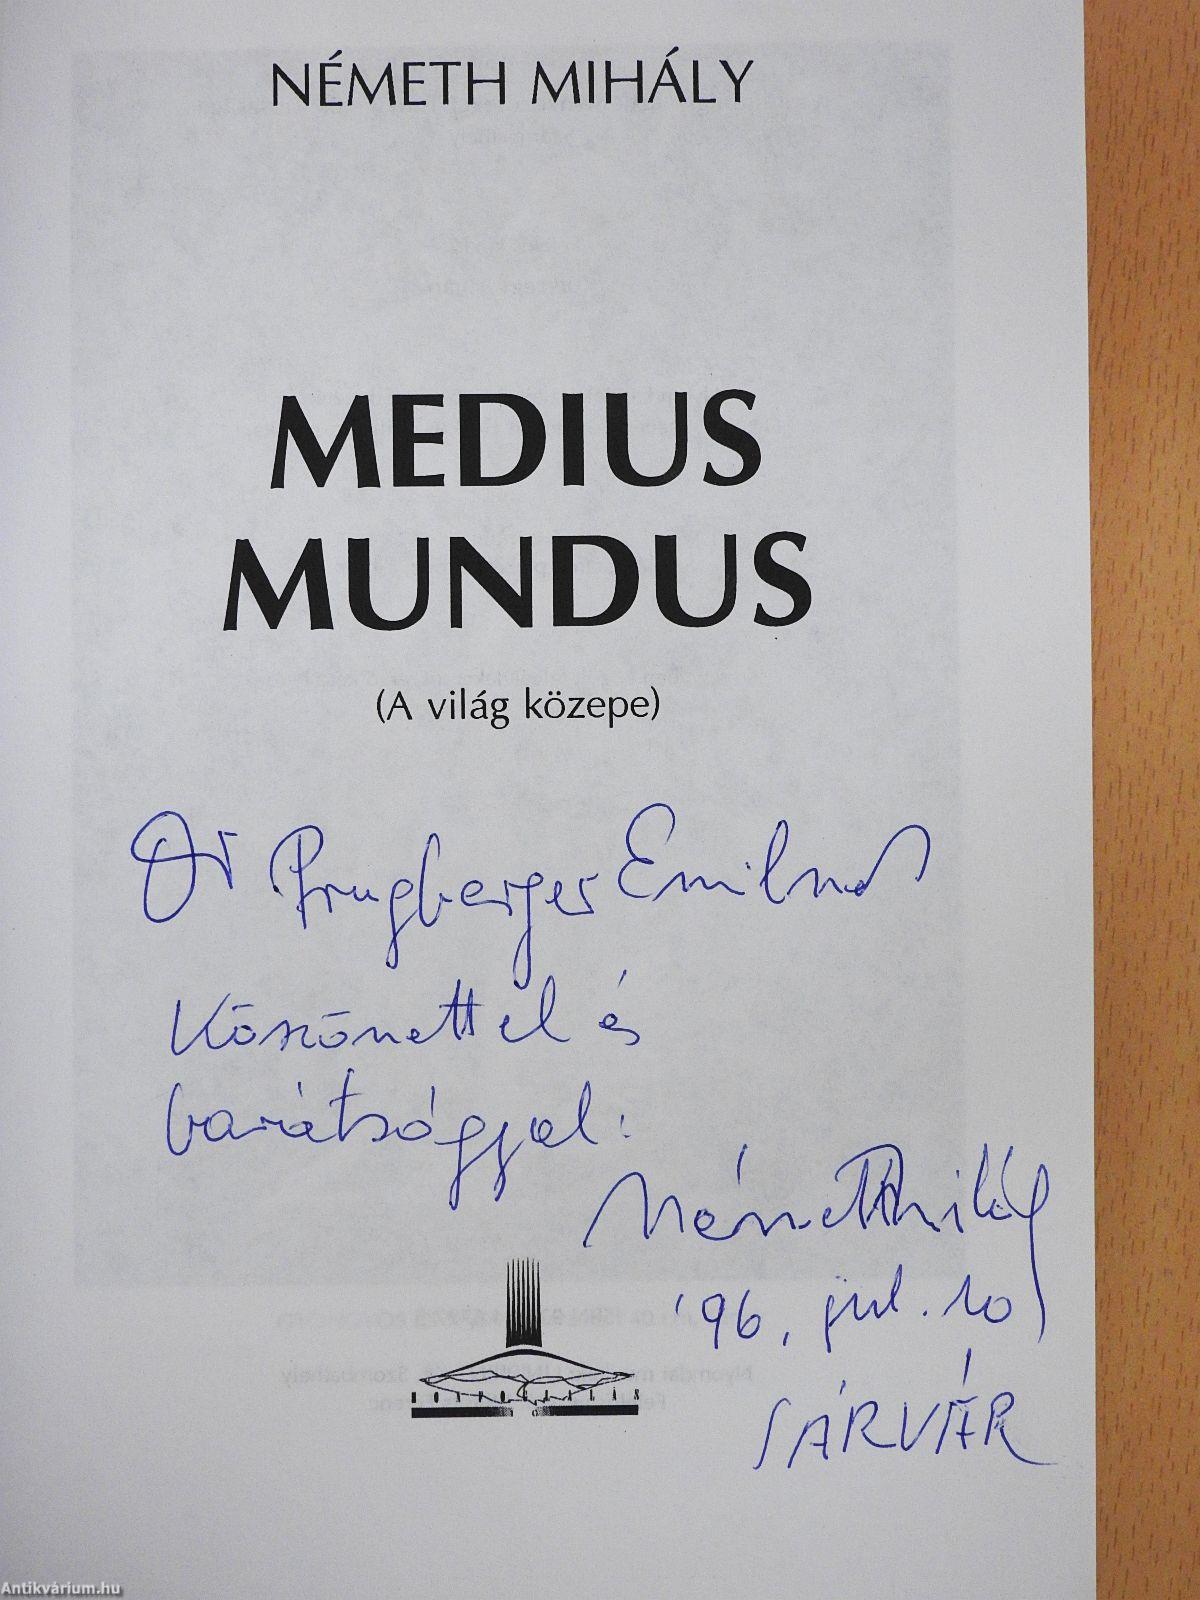 NÉMETH MIHÁLY
MEDIUS
MUNDUS
(A világ közepe)
Dr Prugberger Emilnek
Köszönettel és
barátsággal:
Németh Mihály
'96. jul. 10
SÁRVÁR
Antikvárium.hu